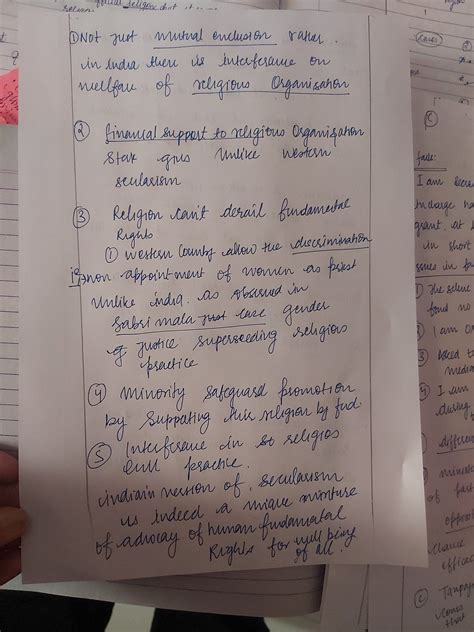 ① Not just mutual exclusion rather
in India there is interference on
wellfare of religious Organisation
② financial support to religious Organisation
State gives unlike western
secularism
③ Religion can't derail fundamental
Rights
① western County allow the discrimination
i.e. non appointment of women as priest
unlike india. as observed in
Sabri mala just case gender
of justice superseeding religious
practice
④ minority safeguard promotion
by supporting their religion by fud.
⑤ Interference in religios
evil practice.
indian version of secularism
is indeed a unique mixture
of advocay of human fundamatal
Rights for well being
of all.
Cases
fade:
I am
grant. at
in short
issues in
found no
② I am
③ based
④ I am
during
difference
minorit
of fact
oppos
chance